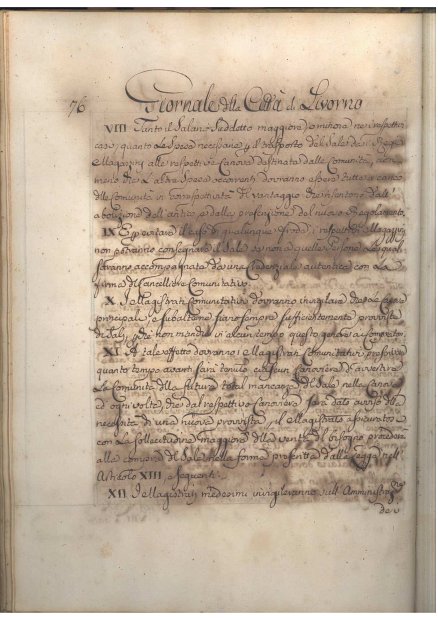 76 Giornale della Città di Livorno
VIII Tanto il Salario suddetto maggiore, o minore nei rispettivi
casi, quanto la Spesa necessaria p il trasporto del Sale dai Regi
Magazzini alle rispettive Canove destinate dalle Comunità, non
meno che l'altre Spese occorrenti dovranno essere tutte a carico
delle Comunità in correspettività del vantaggio che risentono dall'
abolizione dell'antico, e dalla prescrizione del nuovo Regolamento.
IX E per evitare il caso di qualunque frode, i rispettivi Magazzini
non potranno consegnare il Sale se non a quelle Persone, le quali
saranno accompagnate da una Credenziale autentica con la
firma del Cancelliere Comunitativo.
X. I Magistrati Comunitativi dovranno invigilare che le Canove
principali, e subalterne siano sempre sufficientemente provviste
di Sale, che non manchi in alcun tempo questo genere ai Compratori
XI. A tale effetto dovranno i Magistrati Comunitativi prescrivere
quanto tempo avanti sarà tenuto ciascun Canoviere di avvertire
la Comunità della futura total mancanza del Sale nella Canova
ed ogni volta che dal rispettivo Canoviere sarà dato avviso della
necessità di una nuova provvista, il Magistrato assicurato
con la sollecitudine maggiore della verità il bisogno
alla del Sale nella forma prescritta dalla Legge nell'
Articolo XIII, e seguenti.
XII I Magistrati medesimi invigileranno sull'Amministraz.ne